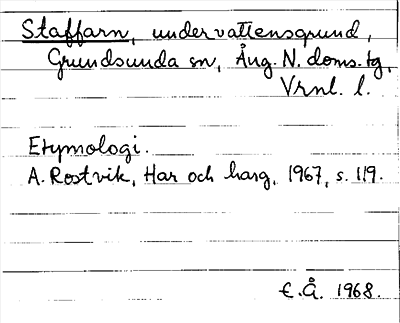 Staffarn, undervattensgrund,
Grundsunda sn, Ång. N. doms.tg,
Vrnl. l.
Etymologi.
A. Rostvik, Har och harg, 1967, s. 119.
E.Å. 1968.